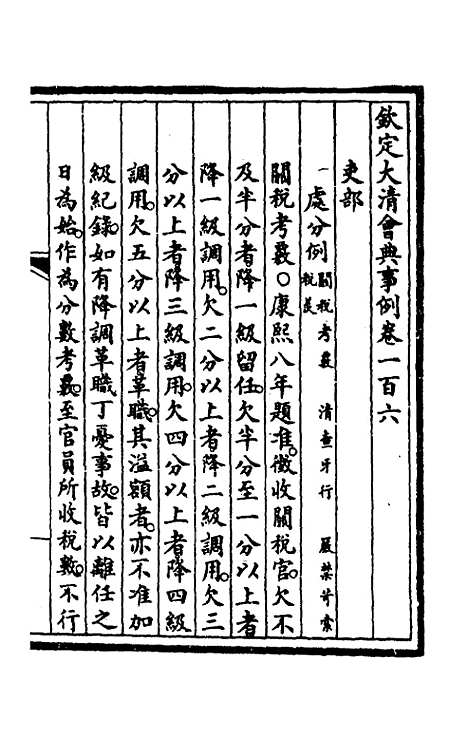 欽定大清會典事例卷一百六
吏部
一處分例 關稅考覈 稅羨 清查牙行 嚴禁苛索
關稅考覈○康熙八年題准。徵收關稅官。欠不
及半分者降一級留任。欠半分至一分以上者
降一級調用。欠二分以上者降二級調用。欠三
分以上者降三級調用。欠四分以上者降四級
調用。欠五分以上者革職。其溢額者。亦不准加
級紀錄。如有降調革職丁憂事故。皆以離任之
日為始。作為分數考覈。至官員所收稅數。不行